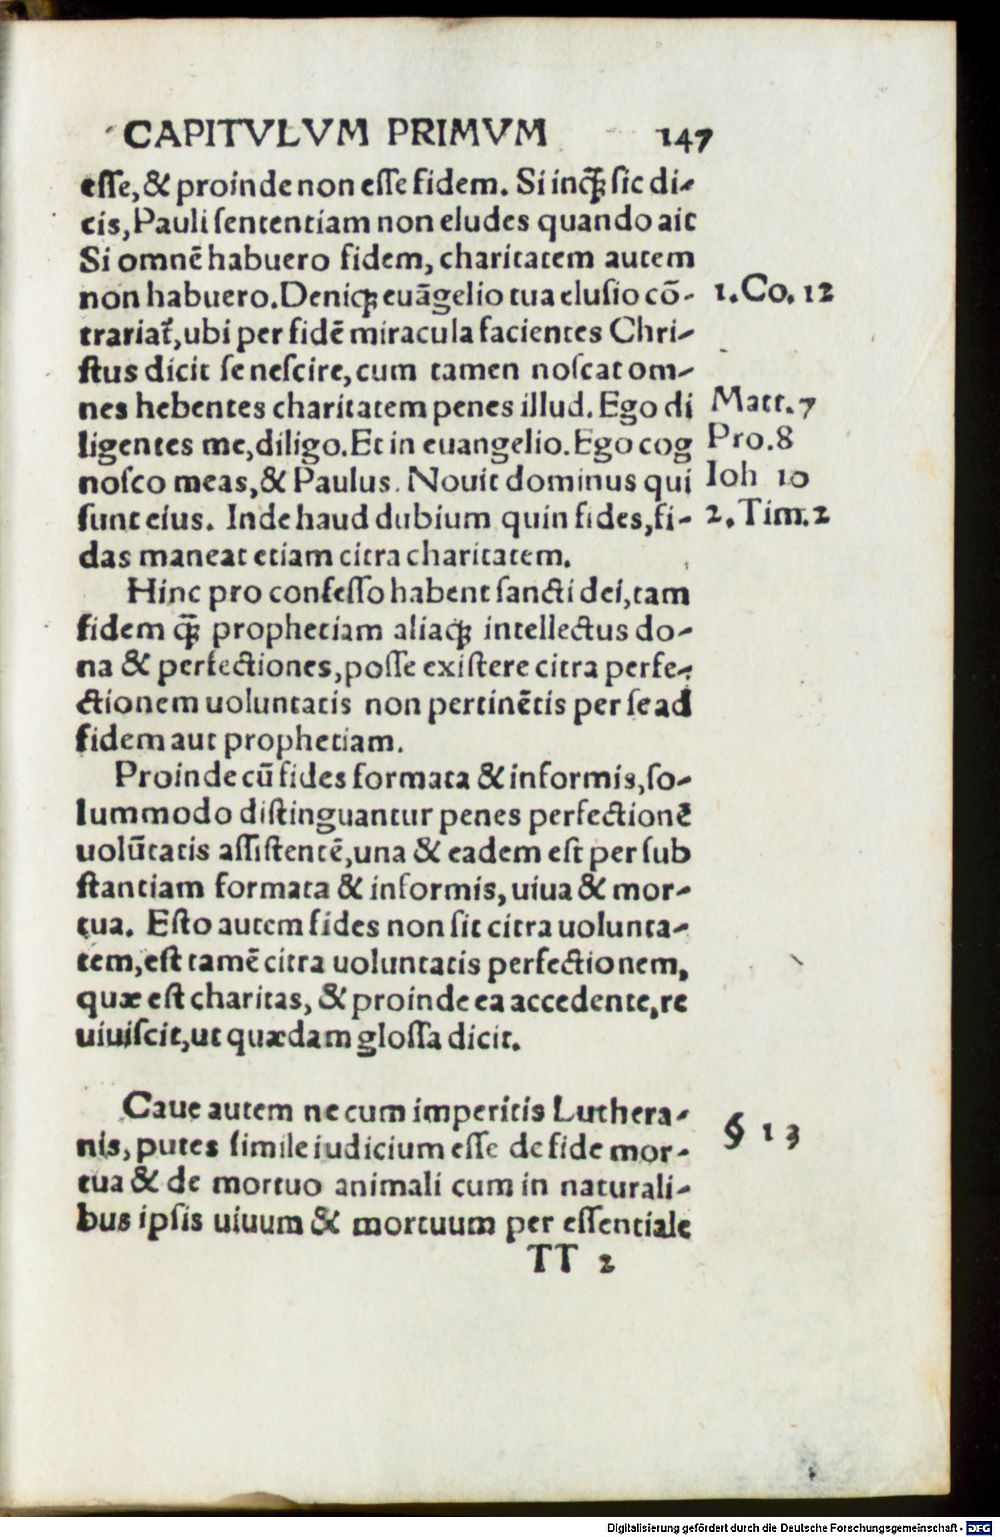 CAPITVLVM PRIMVM 147
esse, & proinde non esse fidem. Si inq̃ sic di-
cis, Pauli sententiam non eludes quando ait
Si omnē habuero fidem, charitatem autem
non habuero. Deniqꝫ euāgelio tua elusio cō- 1. Co. 12
trariat᷑, ubi per fidē miracula facientes Chri-
stus dicit se nescire, cum tamen noscat om-
nes hebentes charitatem penes illud. Ego di Matt. 7
ligentes me, diligo. Et in euangelio. Ego cog Pro. 8
nosco meas, & Paulus. Nouit dominus qui Ioh 10
sunt eius. Inde haud dubium quin fides, fi- 2. Tim. 2
das maneat etiam citra charitatem.
Hinc pro confesso habent sancti dei, tam
fidem q̃ꝫ prophetiam aliaqꝫ intellectus do-
na & perfectiones, posse existere citra perfe-
ctionem uoluntatis non pertinētis per se ad
fidem aut prophetiam.
Proinde cū fides formata & informis, so-
lummodo distinguantur penes perfectionē
uolūtatis assistentē, una & eadem est per sub
stantiam formata & informis, uiua & mor-
tua. Esto autem fides non sit citra uolunta-
tem, est tamē citra uoluntatis perfectionem,
quæ est charitas, & proinde ea accedente, re
uiuiscit, ut quædam glossa dicit.
Caue autem ne cum imperitis Luthera-
nis, putes simile iudicium esse de fide mor- § 13
tua & de mortuo animali cum in naturali-
bus ipsis uiuum & mortuum per essentiale
TT 2
Digitalisierung gefördert durch die Deutsche Forschungsgemeinschaft - DFG